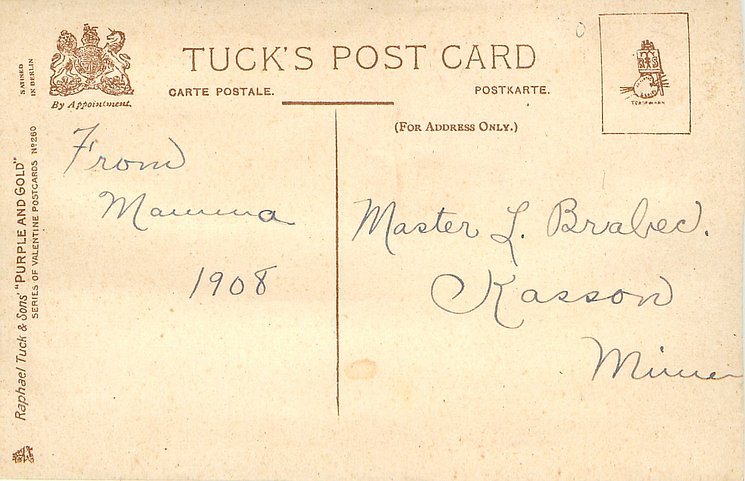 TUCK'S POST CARD
CARTE POSTALE.
POSTKARTE.
(FOR ADDRESS ONLY.)
By Appointment.
SAISED
IN BERLIN
Raphael Tuck & Sons' "PURPLE AND GOLD"
SERIES OF VALENTINE POSTCARDS Nº260
From
Mamma
1908
Master L. Brabec.
Kasson
Minn